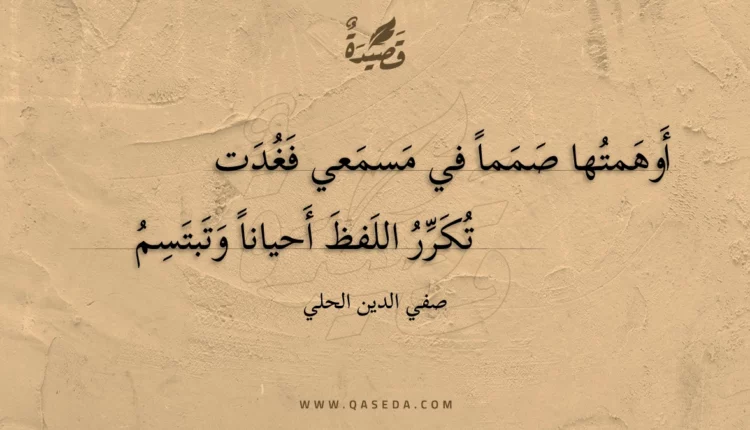 قَصِيدَةٌ
أَوهَمتُها صَمَماً في مَسمَعي فَغُدَت
تُكَرِّرُ اللَفظَ أَحياناً وَتَبتَسِمُ
صفي الدين الحلي
WWW.QASEDA.COM